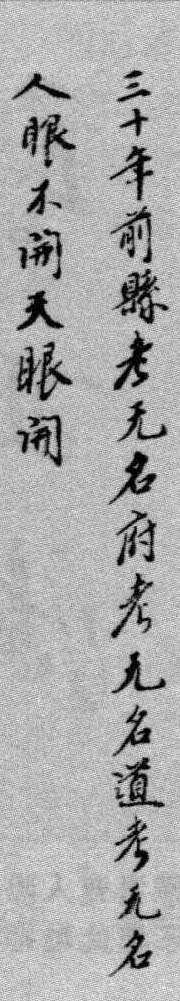 三十年前縣考无名府考无名道考无名
人眼不開天眼開